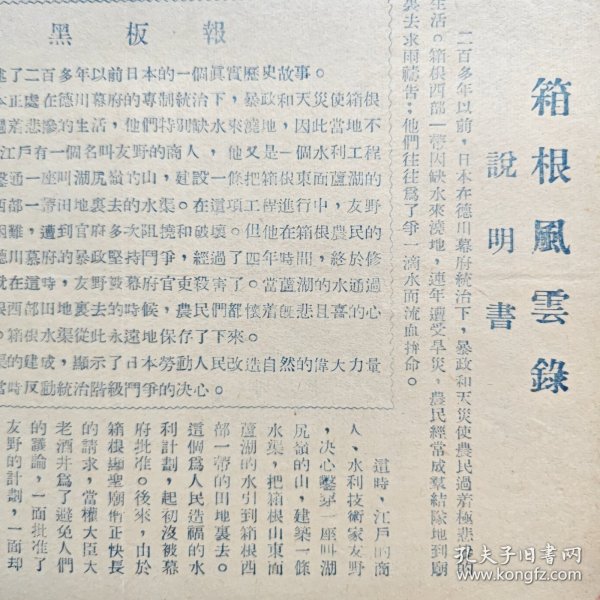 箱根風雲錄
說明書
二百多年以前，日本在德川幕府統治下，暴政和天災使農民過着極悲慘的
生活。箱根西部一帶因缺水來澆地，連年遭受旱災，農民經常成羣結隊地到廟
裏去求雨禱告；他們往往爲了爭一滴水而流血拚命。
黑板報
了二百多年以前日本的一個眞實歷史故事。
本正處在德川幕府的專制統治下，暴政和天災使箱根
着悲慘的生活，他們特別缺水來澆地，因此當地不
江戶有一個名叫友野的商人，他又是一個水利工程
鑿通一座叫湖尻嶺的山，建設一條把箱根東面蘆湖的
西部一帶田地裏去的水渠。在這項工程進行中，友野
困難，遭到官府多次阻撓和破壞。但他在箱根農民的
德川幕府的暴政堅持鬥爭，經過了四年時間，終於修
就在這時，友野被幕府官吏殺害了。當蘆湖的水通過
根西部田地裏去的時候，農民們都懷着旣悲且喜的心
。箱根水渠從此永遠地保存了下來。
渠的建成，顯示了日本勞動人民改造自然的偉大力量
當時反動統治階級鬥爭的决心。
這時，江戶的商
人、水利技術家友野
，决心鑿穿一座叫湖
尻嶺的山，建築一條
水渠，把箱根山東面
蘆湖的水引到箱根西
部一帶的田地裏去。
這個爲人民造福的水
利計劃，起初沒被幕
府批准。後來，由於
箱根顯聖廟僧正快長
的請求，當權大臣大
老酒井爲了避免人們
的議論，一面批准了
友野的計劃，一面却
孔夫子旧书网
kongfz.com